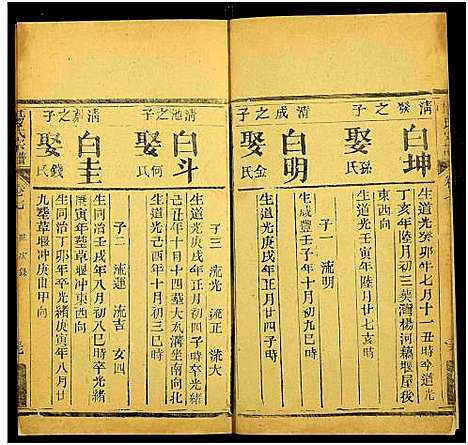 清發之子
白坤
娶孫氏
生道光癸卯年七月十一丑時卒道光
丁亥年陸月初三葬灣楊河藕堰屋後
東西向
生道光庚寅年陸月廿七亥時
子一 流明
清成之子
白明
娶金氏
生咸豐壬子年十月初九巳時
生道光庚戌年正月廿四子時
清池之子
白斗
娶何氏
子三 流光 流正 流大
生道光庚戌年正月初四子時卒光緒
己丑年十月十四葬大衣溝坐南向北
生道光己酉年十月初三子時
子二 流運 流吉 女四
清之子
白圭
娶錢氏
生同治壬戌年八月初八巳時卒光緒
庚寅年葬草堰冲東西向
生同治丁卯年卒光緒庚寅年八月廿
九葬草堰冲庚山甲向
氏宗譜
卷七